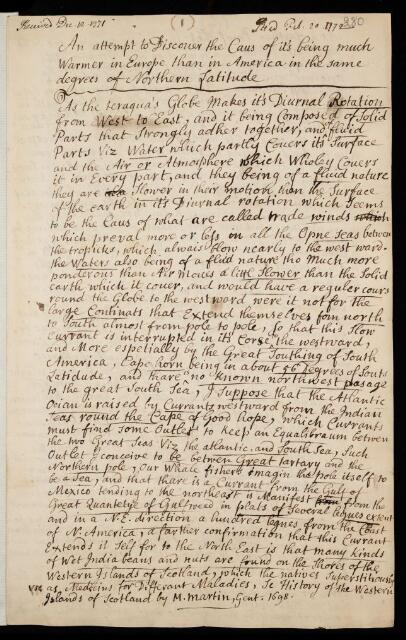 Received Dec. 10. 1771. (1) Feb. 20. 1772 380
An attempt to Discover the Caus of it's being much
Warmer in Europe than in America in the same
degrees of Northern Latitude
As the teraguas Globe Makes it's Diurnal Rotation
from West to East, and it being Composed of Solid
Parts that Strongly adher together, and fluid
Parts Viz Water which partly Couers it's Surface
and the Air or Atmosphere which Wholey Couers
it in Every part, and they being of a fluid nature
they are Slower in their motion than the Surface
of the earth in it's Diurnal rotation which Seems
to be the Caus of what are called trade winds
which preval more or less in all the Opne Seas between
the tropicks, which always flow nearly to the west ward.
the Waters also being of a fluid nature tho Much more
ponderous than Air moues a litle Slower than the Solid
earth which it couer, and would have a reguler cours
round the Globe to the westward were it not for the
large Continats that Extend themselves from north
to South almost from pole to pole, So that this Slow
Currant is interrupted in its Corse the westward,
and More espetially by the Great Southing of South
America, Cape horn being in about 56 Degrees of South
Latidude, and thare no known northwest pasage
to the great South Sea, I Suppose that the Atlantic
Ocian is raised by Currants westward from the Indian
Seas round the Cape of Good hope, which Currants
must find some Outlet to keep an Equalibraum betwen
the two Great Seas Viz the atlantic and South Sea, Such
Outlet I conceive to be betwen Great tartary and the
Northern pole, Our Whale fishers emagin the pole itself to
be a Sea, and that there is a Currant from the Gulf of
Mexico tending to the northeast is Manifest from the
Great Quantetye of Gulf weed in plats of Several leques extent
and in a N.E. direction a hundred leques from the Coast
of N. America, a farther confirmation that this Currant
Extends it self for to the North East is that many kinds
of Wet India beans and nuts are found on the Shores of the
Western Islands of Scotland, which the natives Superstitiously
use as Medecins for Different Maladies, Se History of the Western
Islands of Scotland by M. Martin, Gent. 1698.